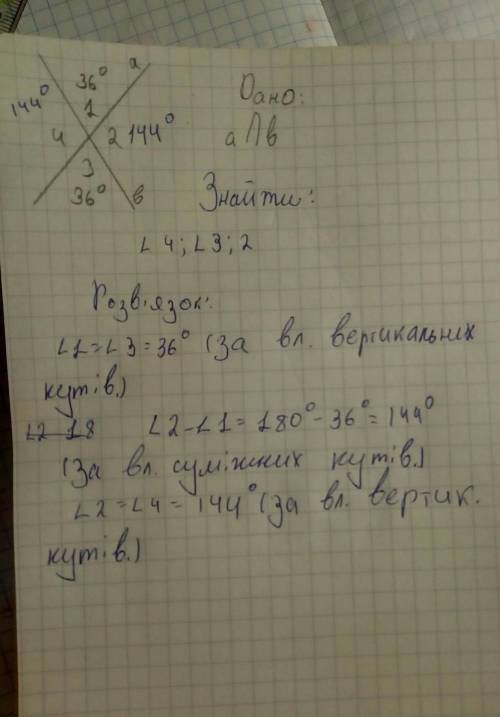 36° а
144° 1
4 2 144°
3
36° в
Дано:
а ∩ в
Знайти:
∠4; ∠3; 2
Розв'язок:
∠1=∠3=36° (за вл. вертикальних
кутів.)
∠2 18 ∠2-∠1=180°-36°=144°
(За вл. суміжних кутів.)
∠2=∠4=144° (за вл. вертик.
кутів.)